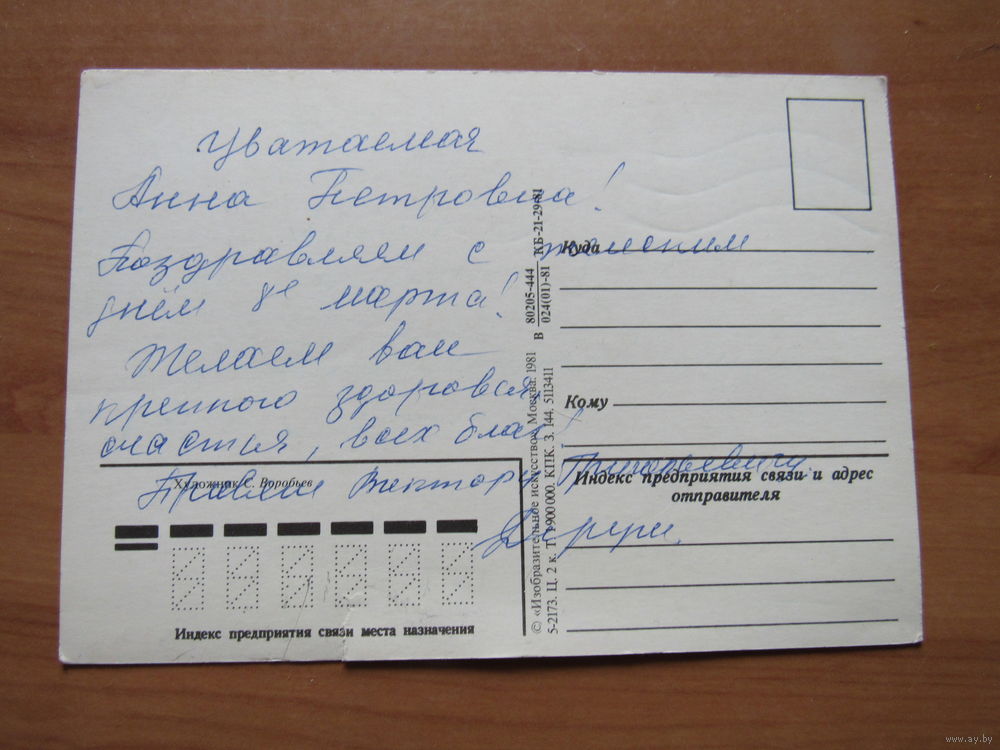 Уважаемая
Анна Петровна!
Поздравляем с женским
днём 8е марта!
Желаем вам
крепкого здоровья,
счастья, всех благ!
Привет Виктору Григорьевичу.
Куда
Кому
Индекс предприятия связи и адрес
отправителя
Художник С. Воробьев
Индекс предприятия связи места назначения
© «Изобразительное искусство». Москва. 1981
5-2173. Ц. 2 к. Т. 1 900 000. КПК. З. 144. 5113411
В 80205-444 КБ-21-29-81
024(01)-81
www.ay.by